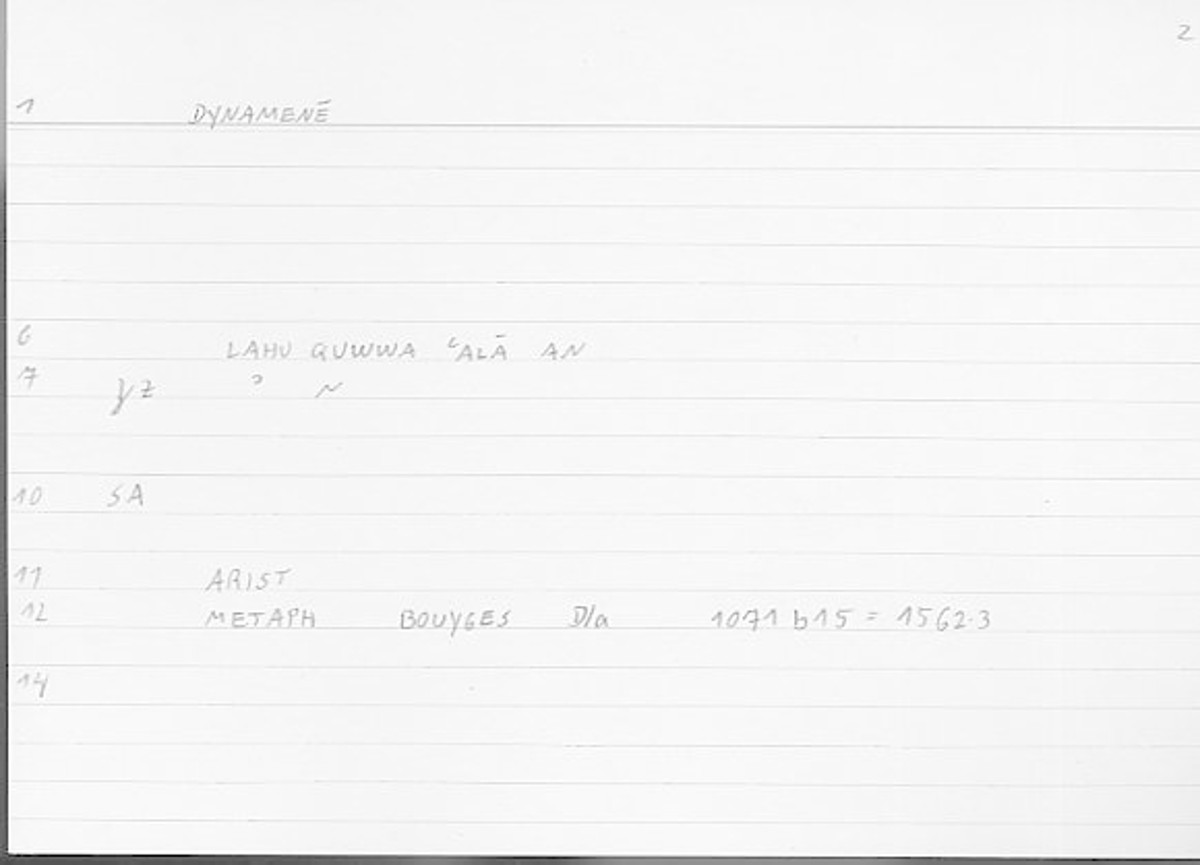 2
1 DYNAMENĒ
6 LAHU QUWWA ʿALĀ AN
7 yz ʾ N
10 SA
11 ARIST
12 METAPH BOUYGES D/a 1071 b15 = 1562.3
14